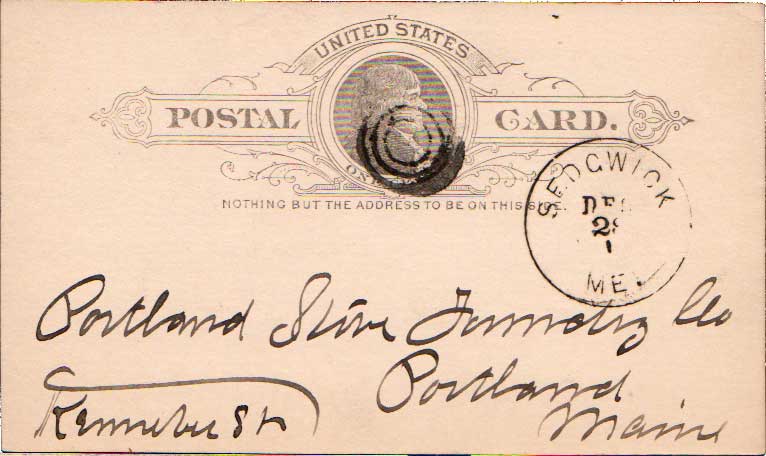 UNITED STATES
POSTAL CARD.
NOTHING BUT THE ADDRESS TO BE ON THIS SIDE.
SEDGWICK
DEC
ME.
Portland Stove Foundry Co
Portland
Maine
Kennebec St